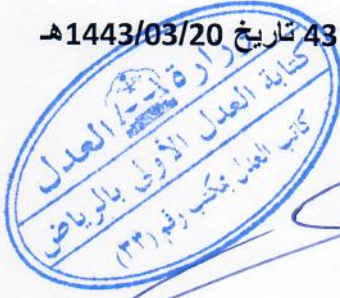 43 تاريخ 1443/03/20هـ
وزارة العدل
كتابة العدل الأولى بالرياض
كاتب العدل بمكتب رقم (٣٣)